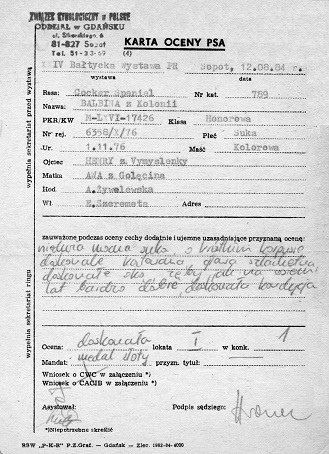 ZWIĄZEK KYNOLOGICZNY w POLSCE
ODDZIAŁ w GDAŃSKU
81-827 Sopot
Tel. 51-33-69
KARTA OCENY PSA
(4)
XXIV Bałtycka Wystawa PR Sopot, 12.08.84 r.
wystawa data
Rasa: Cocker Spaniel Nr kat. 789
Nazwa: BALBINA z Kolonii
PKR/KW M-LXVI-17426 Klasa Honorowa
Nr rej. 6358/X/76 Płeć Suka
Ur. 1.11.76 Maść Kolorowa
Ojciec HENRY z Wymyslenky
Matka AWA z Golęcina
Hod A.Żywolewska
Wł. E.Szeremeta Adres
wypełnia sekretariat przed wystawą
zauważone podczas oceny cechy dodatnie i ujemne uzasadniające przyznaną ocenę:
suka o
doskonałe głowa szlachetna
doskonałe oko, zęby jak na osiem
lat bardzo dobre doskonała kondycja
wypełnia sekretariat ringu
Ocena: doskonała lokata I w konk. 1
Medal: medal złoty przyzn. tytuł
Wniosek o CWC w załączeniu *)
Wniosek o CACIB w załączeniu *)
Asystował: Podpis sędziego:
*)Niepotrzebne skreślić
RSW „P-K-R" P.Z.Graf. — Gdańsk — Zlec. 1982-84-4000